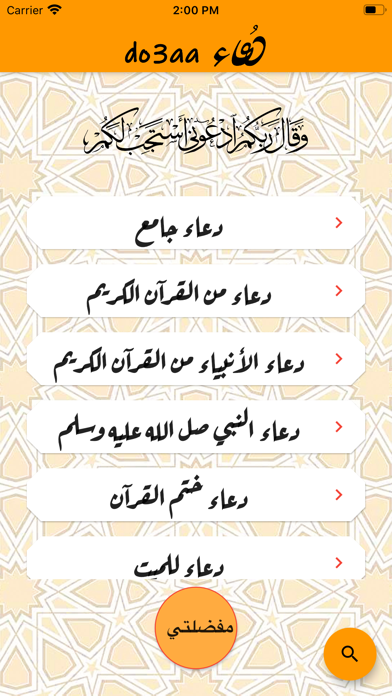 Carrier 2:00 PM
do3aa دعاء
وقال ربكم ادعوني أستجب لكم
دعاء جامع
دعاء من القرآن الكريم
دعاء الأنبياء من القرآن الكريم
دعاء النبي صل الله عليه وسلم
دعاء ختم القرآن
دعاء للميت
مفضلتي